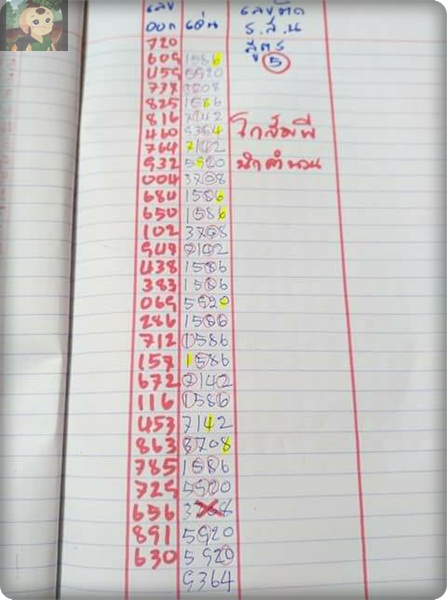 เลข
ออก เด่น
เลขตัด
ร.ส.น
สูตร
5
โกสัมพี
นักคำนวน
720
609 1586
459 5920
777 3708
825 1586
816 7142
460 9364
764 7142
932 5920
004 3708
680 1586
650 1586
102 3708
947 7142
438 1586
383 1586
069 5920
286 1586
712 1586
157 1586
672 7142
116 1586
453 7142
863 3708
785 1586
729 5920
656 3708
891 5920
630 5920
9364